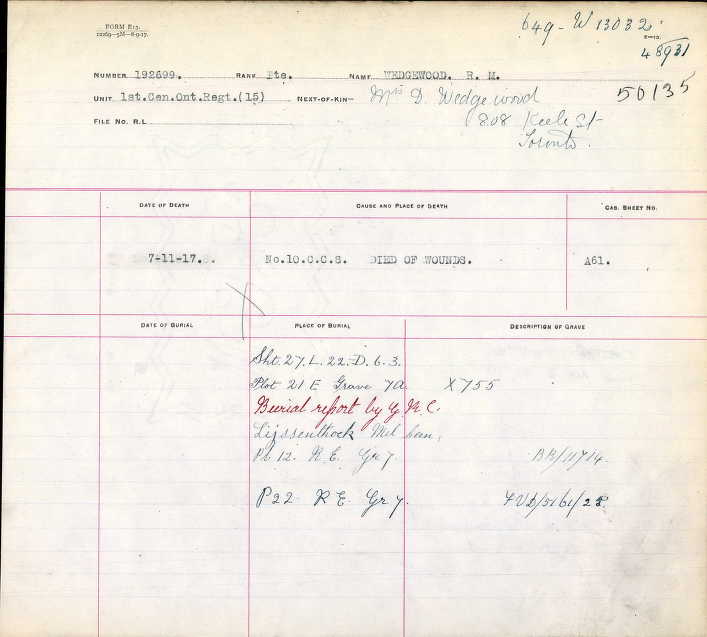 FORM E15.
649-W 13032
48931
NUMBER 192699. RANK Pte. NAME WEDGEWOOD. R. M.
UNIT 1st.Cen.Ont.Regt.(15) NEXT-OF-KIN— Mrs D. Wedgewood 50135
808 Keele St
FILE NO. R.L.
Toronto.
DATE OF DEATH CAUSE AND PLACE OF DEATH CAS. SHEET NO.
7-11-17. No.10.C.C.S. DIED OF WOUNDS. A61.
DATE OF BURIAL PLACE OF BURIAL DESCRIPTION OF GRAVE
Sht. 27. L. 22. D. 6. 3.
Plot 21 E Grave 7A. X755
Burial report by G.R.C.
Lijssenthoek Mil Cem,
Pl. 12. R.E. Gr 7.
P 22 R E Gr 7.